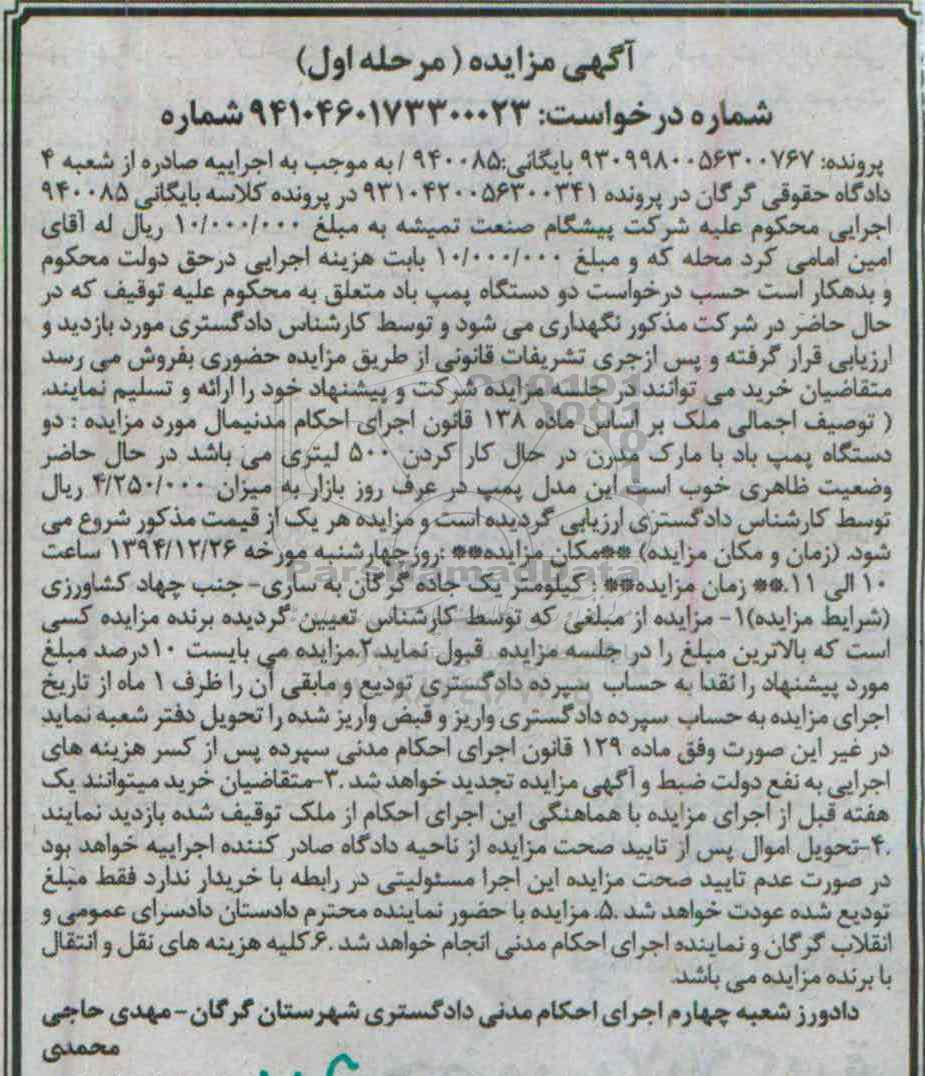 آگهی مزایده ( مرحله اول)
شماره درخواست: ۹۴۱۰۴۶۰۱۷۳۳۰۰۰۲۳ شماره
پرونده: ۹۳۰۹۹۸۰۰۵۶۳۰۰۷۶۷ بایگانی:۹۴۰۰۸۵ / به موجب به اجراییه صادره از شعبه ۴
دادگاه حقوقی گرگان در پرونده ۹۳۱۰۴۲۰۰۵۶۳۰۰۳۴۱ در پرونده کلاسه بایگانی ۹۴۰۰۸۵
اجرایی محکوم علیه شرکت پیشگام صنعت تمیشه به مبلغ ۱۰/۰۰۰/۰۰۰ ریال له آقای
امین امامی کرد محله که و مبلغ ۱۰/۰۰۰/۰۰۰ بابت هزینه اجرایی درحق دولت محکوم
و بدهکار است حسب درخواست دو دستگاه پمپ باد متعلق به محکوم علیه توقیف که در
حال حاضر در شرکت مذکور نگهداری می شود و توسط کارشناس دادگستری مورد بازدید و
ارزیابی قرار گرفته و پس ازجری تشریفات قانونی از طریق مزایده حضوری بفروش می رسد
متقاضیان خرید می توانند در جلسه مزایده شرکت و پیشنهاد خود را ارائه و تسلیم نمایند.
( توصیف اجمالی ملک بر اساس ماده ۱۳۸ قانون اجرای احکام مدنیمال مورد مزایده : دو
دستگاه پمپ باد با مارک مدرن در حال کار کردن ۵۰۰ لیتری می باشد در حال حاضر
وضعیت ظاهری خوب است این مدل پمپ در عرف روز بازار به میزان ۴/۲۵۰/۰۰۰ ریال
توسط کارشناس دادگستری ارزیابی گردیده است و مزایده هر یک از قیمت مذکور شروع می
شود. (زمان و مکان مزایده) **مکان مزایده** :روزچهارشنبه مورخه ۱۳۹۴/۱۲/۲۶ ساعت
۱۰ الی ۱۱.** زمان مزایده** : کیلومتر یک جاده گرگان به ساری- جنب چهاد کشاورزی
(شرایط مزایده)۱- مزایده از مبلغی که توسط کارشناس تعیین گردیده برنده مزایده کسی
است که بالاترین مبلغ را در جلسه مزایده قبول نماید.۲.مزایده می بایست ۱۰درصد مبلغ
مورد پیشنهاد را نقدا به حساب سپرده دادگستری تودیع و مابقی آن را ظرف ۱ ماه از تاریخ
اجرای مزایده به حساب سپرده دادگستری واریز و قبض واریز شده را تحویل دفتر شعبه نماید
در غیر این صورت وفق ماده ۱۲۹ قانون اجرای احکام مدنی سپرده پس از کسر هزینه های
اجرایی به نفع دولت ضبط و آگهی مزایده تجدید خواهد شد .۳-متقاضیان خرید میتوانند یک
هفته قبل از اجرای مزایده با هماهنگی این اجرای احکام از ملک توقیف شده بازدید نمایند
.۴-تحویل اموال پس از تایید صحت مزایده از ناحیه دادگاه صادر کننده اجراییه خواهد بود
در صورت عدم تایید صحت مزایده این اجرا مسئولیتی در رابطه با خریدار ندارد فقط مبلغ
تودیع شده عودت خواهد شد .۵. مزایده با حضور نماینده محترم دادستان دادسرای عمومی و
انقلاب گرگان و نماینده اجرای احکام مدنی انجام خواهد شد .۶.کلیه هزینه های نقل و انتقال
با برنده مزایده می باشد.
دادورز شعبه چهارم اجرای احکام مدنی دادگستری شهرستان گرگان - مهدی حاجی
محمدی
ParsNamadData